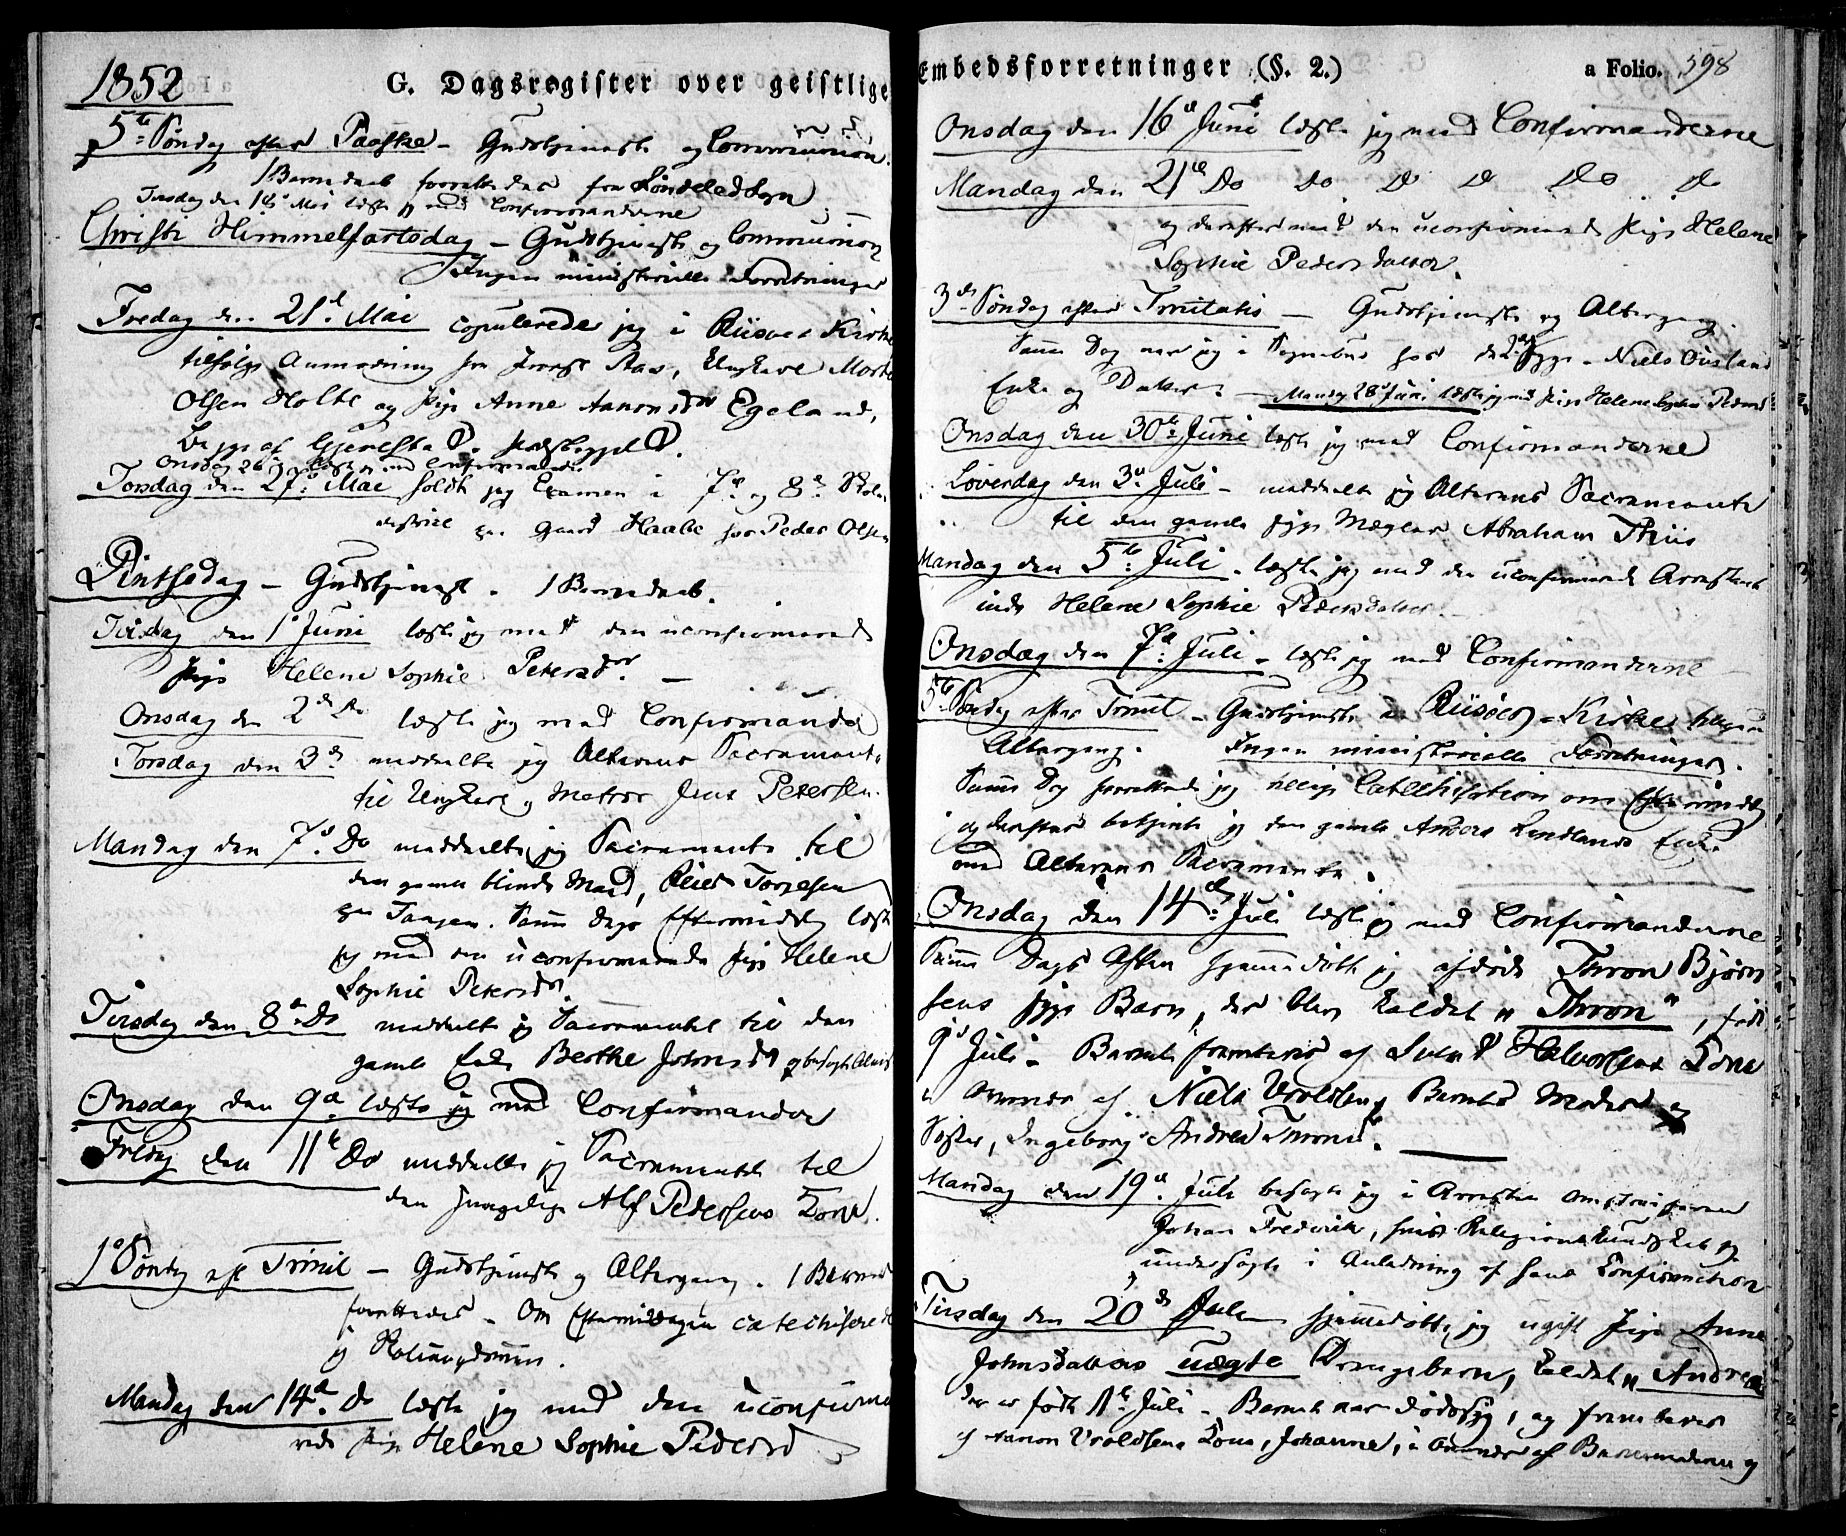 1852
G. Dagsregister over geistlige
5te Søndag efter Paaske - Gudstjeneste og Communion.
1 Barnedaab forrettedes fra Søndeled Sogn
Tirsdag den 18d Mai læste jeg med Confirmanderne
Christi Himmelfartsdag - Gudstjeneste og Communion
Ingen ministerielle Forretninger
Fredag den 21d Mai copulerede jeg i Riisøer Kirke
tilfølge Anmodning fra Provst Aas, Ungkarl Morten
Olsen Holte og Pige Anne Aanonsdr Egeland,
Begge af Gjerestad Præstegjeld.
Onsdag 26d læste jeg med Confirmander
Torsdag den 27d Mai holdt jeg Examen i 7de og 8de Skole
district paa Gaard Haabe hos Peder Olsen
Pintsedag - Gudstjeneste. 1 Barnedaab.
Tirsdag den 1d Juni læste jeg med den uconfirmerede
Pige Helene Sophie Petersdr. -
Onsdag den 2den Do læste jeg med Confirmander
Torsdag den 3d meddeelte jeg Alterens Sacramente
til Ungkarl og Matros Jens Petersen.
Mandag den 7d Do meddeelte jeg Sacramente til
den gamle blinde Mand, Reier Torjesen
paa Tangen. Samme Dags Eftermiddag læste
jeg med den uconfirmerede Pige Helene
Sophie Petersdr.
Tirsdag den 8de Do meddeelte jeg Sacramentet til den
gamle Enke Berthe Johnsdr og besøgte
Onsdag den 9d læste jeg med Confirmander
Fredag den 11te Do meddeelte jeg Sacramentet til
den Alf Pedersens Kone.
1d Søndag efter Trinit - Gudstjeneste og Altergang. 1 Barne
forrettedes - Om Eftermiddagen catechiserede
jeg
Mandag den 14d Do læste jeg med den uconfirme
rede Pige Helene Sophie Pedersd
Embedsforretninger (§. 2.) a Folio. 598
Onsdag den 16d Juni læste jeg med Confirmanderne
Mandag den 21de Do Do Do Do Do Do
og derefter med den uconfirmerede Pige Helene
Sophie Pedersdatter.
3de Søndag efter Trinitatis - Gudstjeneste og Altergang.
Samme Dag var jeg i Sognebud hos de 2de syge - Niels Ousland
Enke og Datter. - Mandag 28d Juni læste jeg med Pige Helene Sophie Pedersd
Onsdag den 30te Juni læste jeg med Confirmanderne
Løverdag den 3d Juli - meddeelte jeg Alterens Sacramente
til den gamle syge Mægler Abraham Thiis
Mandag den 5te Juli - læste jeg med den uconfirmerede Arrestant
inde Helene Sophie Pedersdatter. -
Onsdag den 7d Juli - læste jeg med Confirmanderne
5te Søndag efter Trinit - Gudstjeneste i Riisøer - Kirke,
Altergang. Ingen ministerielle Forretninger.
Samme Dag forrettede jeg tillige Catechisation om Eftermiddag
og derefter betjente jeg den gamle Anders Lindlands Enke
med Alterens Sacramente.
Onsdag den 14de Juli læste jeg med Confirmanderne
Samme Dags Aften hjemmedøbte jeg afdøde Thron Bjørn
sens syge Barn, der blev kaldet "Thron", født
9d Juli - Barnet frembæres af Svend Halvorsens Kone
i Overvær af Niels Vroldsen, Barnets Moder og
Søster, Ingeborg Andrea Thronsd.
Mandag den 19d Juli besøgte jeg i Arresten Omstreiferen
Johan Frederik, hvis Religionskundskab jeg
undersøgte i Anledning af hans Confirmation
Tirsdag den 20de Juli hjemmedøbte jeg ugift Pige Anne
Johnsdatters uægte Drengebarn, kaldet "Andreas
der er født 11te Juli - Barnet var dødssyg, og frembæres
af Aanon Vroldsens Kone, Johanne, i Overvær af Barnemoderen og